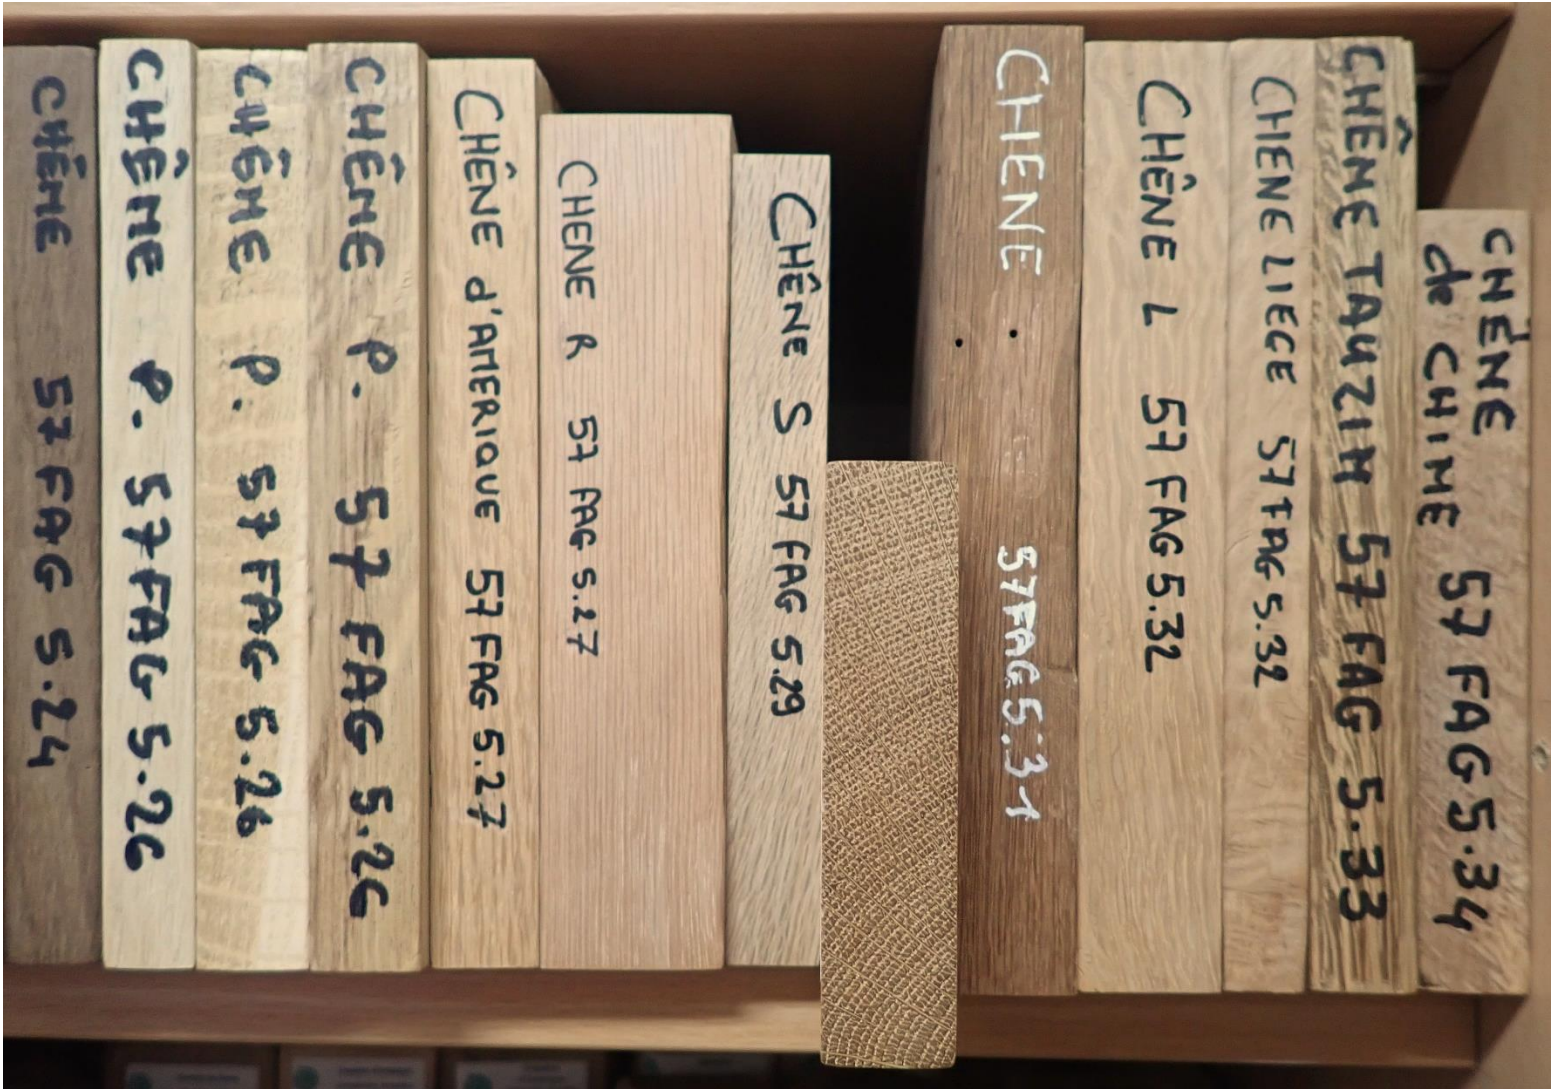 CHÊNE 57 FAG 5.24
CHÊNE P. 57 FAG 5.26
CHÊNE P. 57 FAG 5.26
CHÊNE P. 57 FAG 5.26
CHÊNE d'AMERIQUE 57 FAG 5.27
CHENE R 57 FAG 5.27
CHÊNE S 57 FAG 5.29
CHENE 57 FAG 5.31
CHÊNE L 57 FAG 5.32
CHENE LIEGE 57 FAG 5.32
CHÊNE TAUZIN 57 FAG 5.33
CHÊNE
de CHINE 57 FAG 5.34